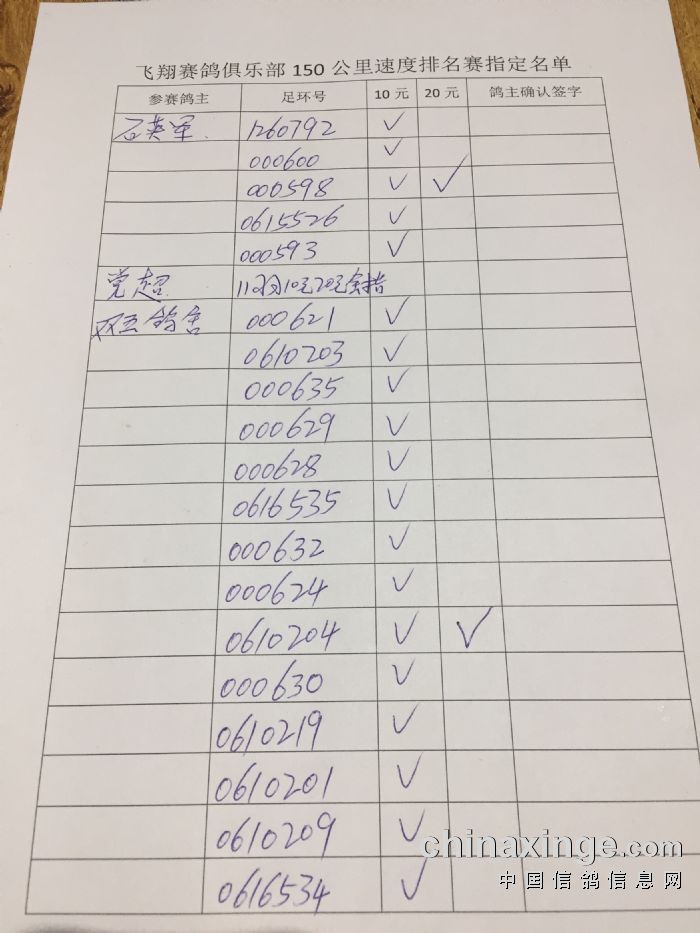 飞翔赛鸽俱乐部150公里速度排名赛指定名单
参赛鸽主 足环号 10元 20元 鸽主确认签字
石英军 1260792 ✓
000600 ✓
000598 ✓ ✓
0615526 ✓
000593 ✓
党超 11羽10元20元全指
双玉鸽舍 000621 ✓
0610203 ✓
000635 ✓
000629 ✓
000628 ✓
0616535 ✓
000632 ✓
000624 ✓
0610204 ✓ ✓
000630 ✓
0610219 ✓
0610201 ✓
0610209 ✓
0616534 ✓
chinaxinge.com
中国信鸽信息网